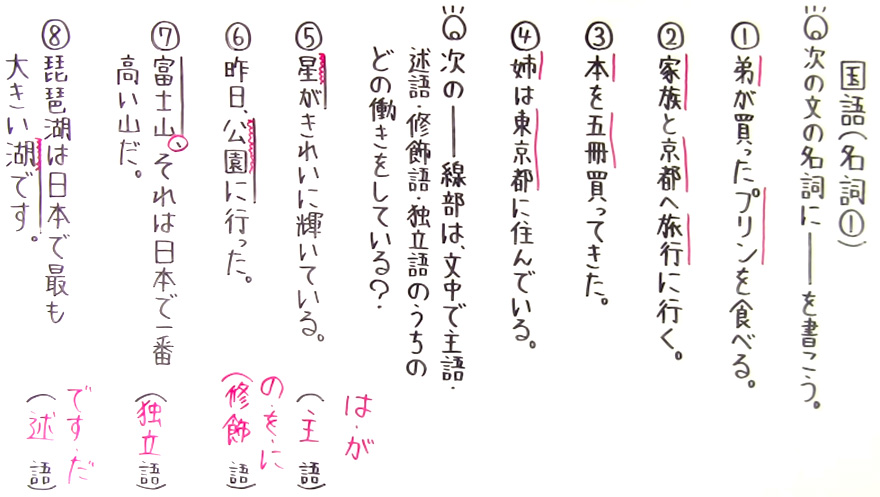 国語(名詞①)
次の文の名詞に──を書こう。
①弟が買ったプリンを食べる。
②家族と京都へ旅行に行く。
③本を五冊買ってきた。
④姉は東京都に住んでいる。
次の──線部は、文中で主語・
述語・修飾語・独立語のうちの
どの働きをしている?
は・が
⑤星がきれいに輝いている。(主語)
の・を・に
⑥昨日、公園に行った。(修飾語)
⑦富士山、それは日本で一番
高い山だ。(独立語)
です・だ
⑧琵琶湖は日本で最も
大きい湖です。(述語)